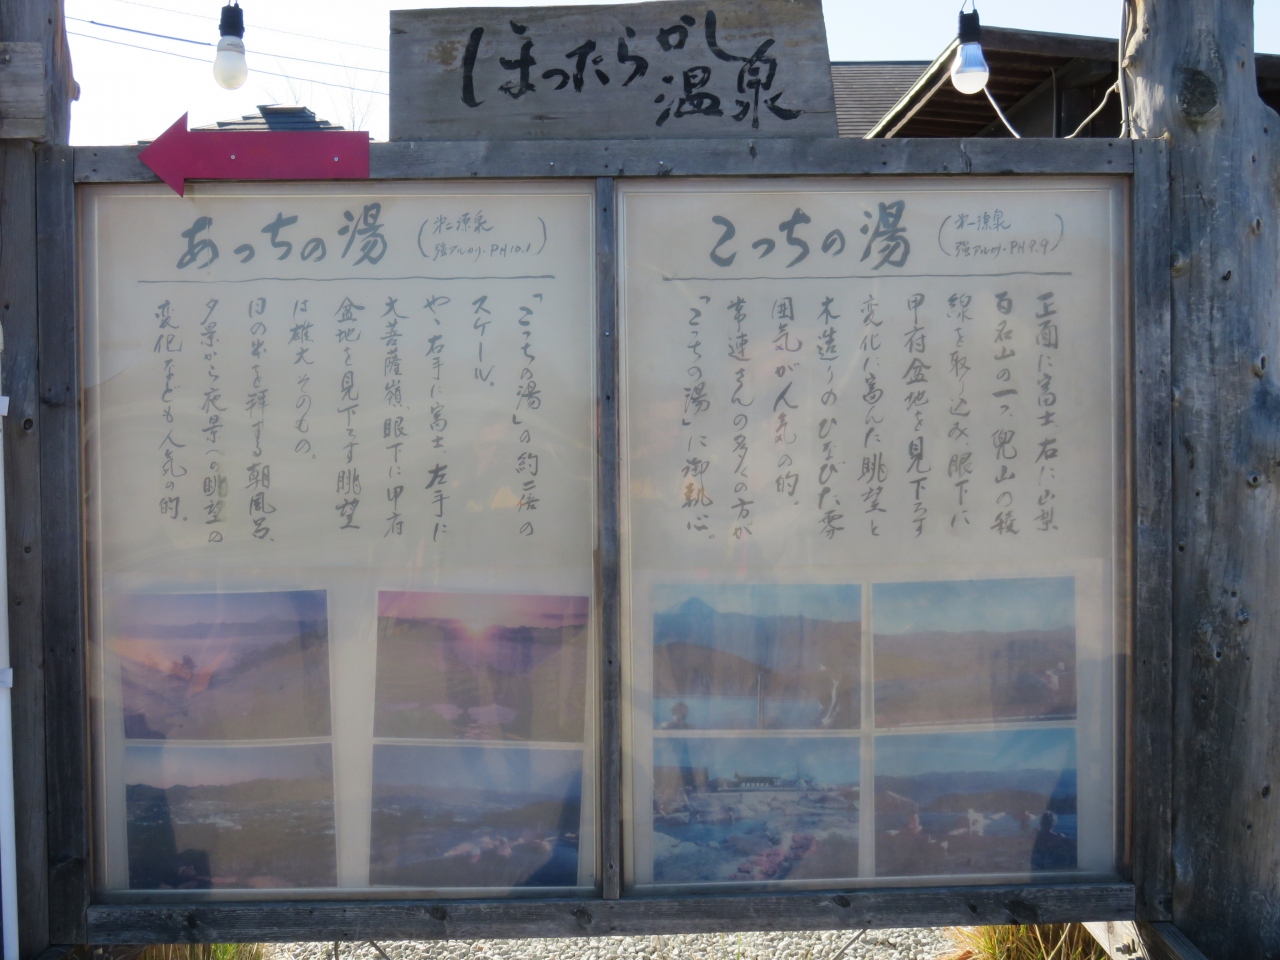 ほったらかし
温泉
あっちの湯
(第二源泉
強アルカリ・PH10.1)
「こっちの湯」の約二倍の
スケール。
やゝ右手に富士、左手に
大菩薩嶺、眼下に甲府
盆地を見下ろす眺望
は雄大そのもの。
日の出を拝する朝風呂、
夕景から夜景への眺望の
変化なども人気の的。
こっちの湯
(第一源泉
強アルカリ・PH9.9)
正面に富士、右に山梨
百名山の一つ、兜山の稜
線を取り込み、眼下に
甲府盆地を見下ろす
変化に富んだ眺望と
木造りのひなびた雰
囲気が人気の的。
常連さんの多くの方が
「こっちの湯」に御執心。